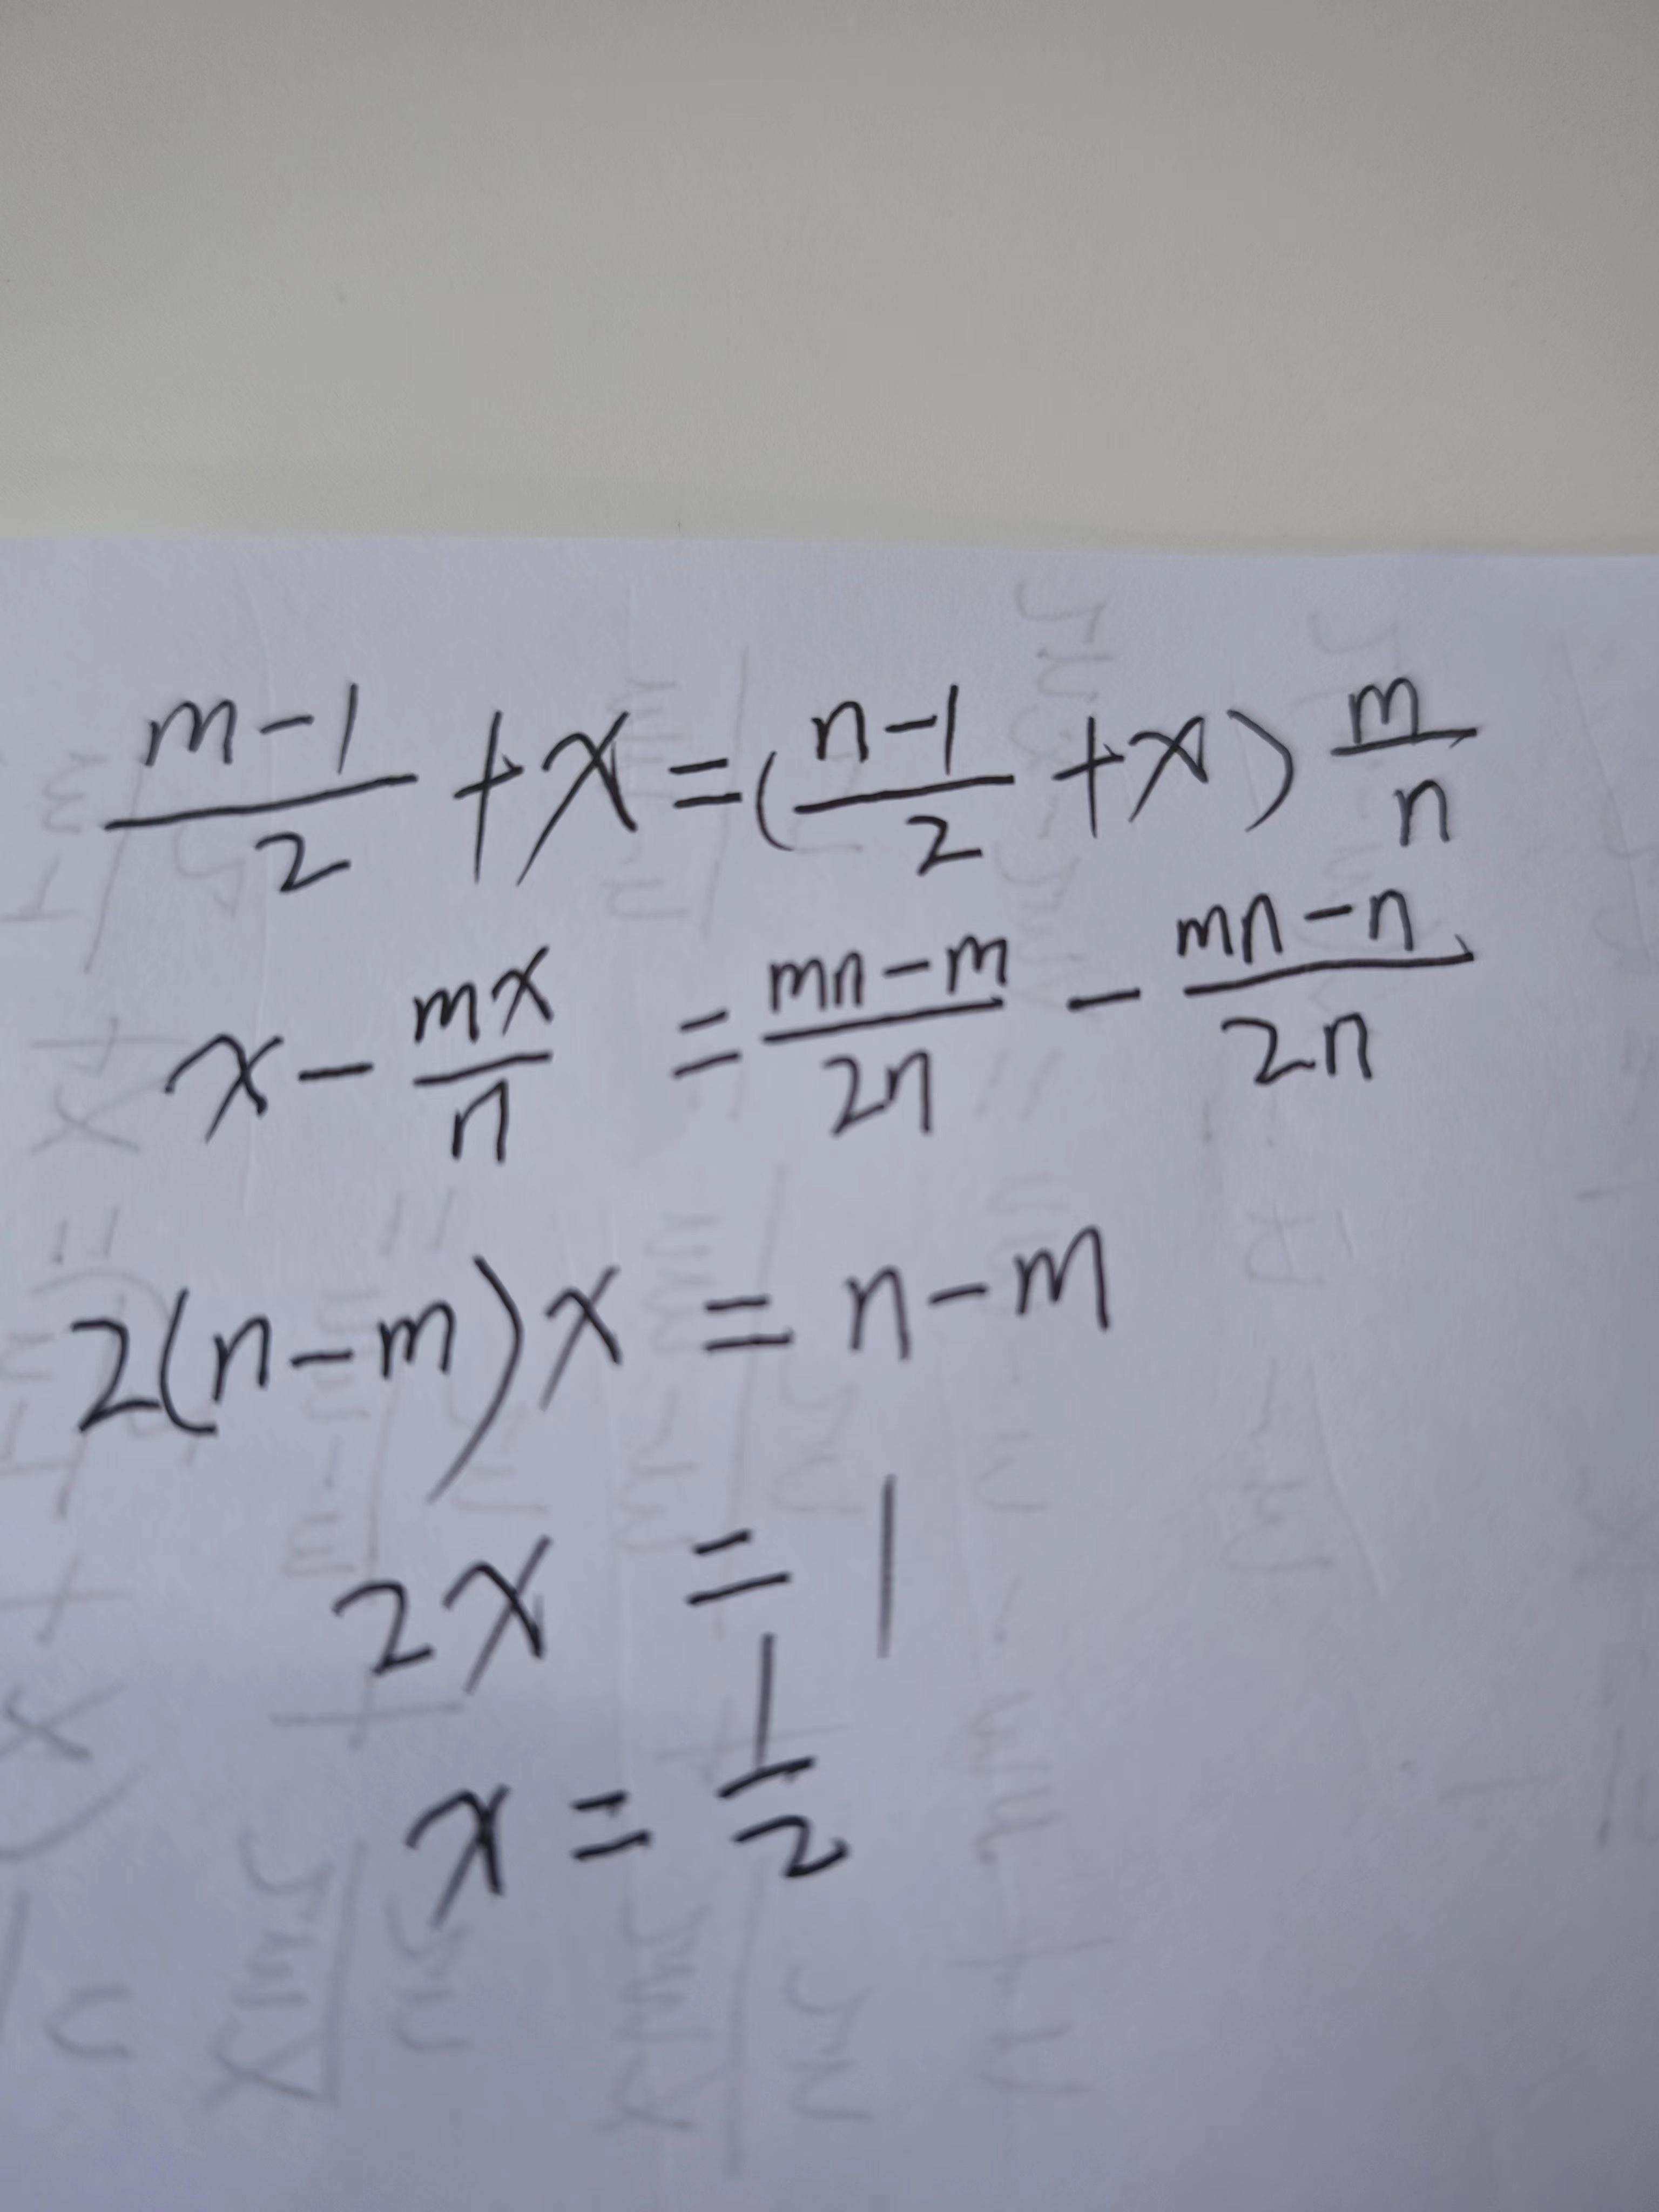 (m-1)/2 + x = ((n-1)/2 + x) m/n
x - mx/n = (mn-m)/2n - (mn-n)/2n
2(n-m)x = n-m
2x = 1
x = 1/2